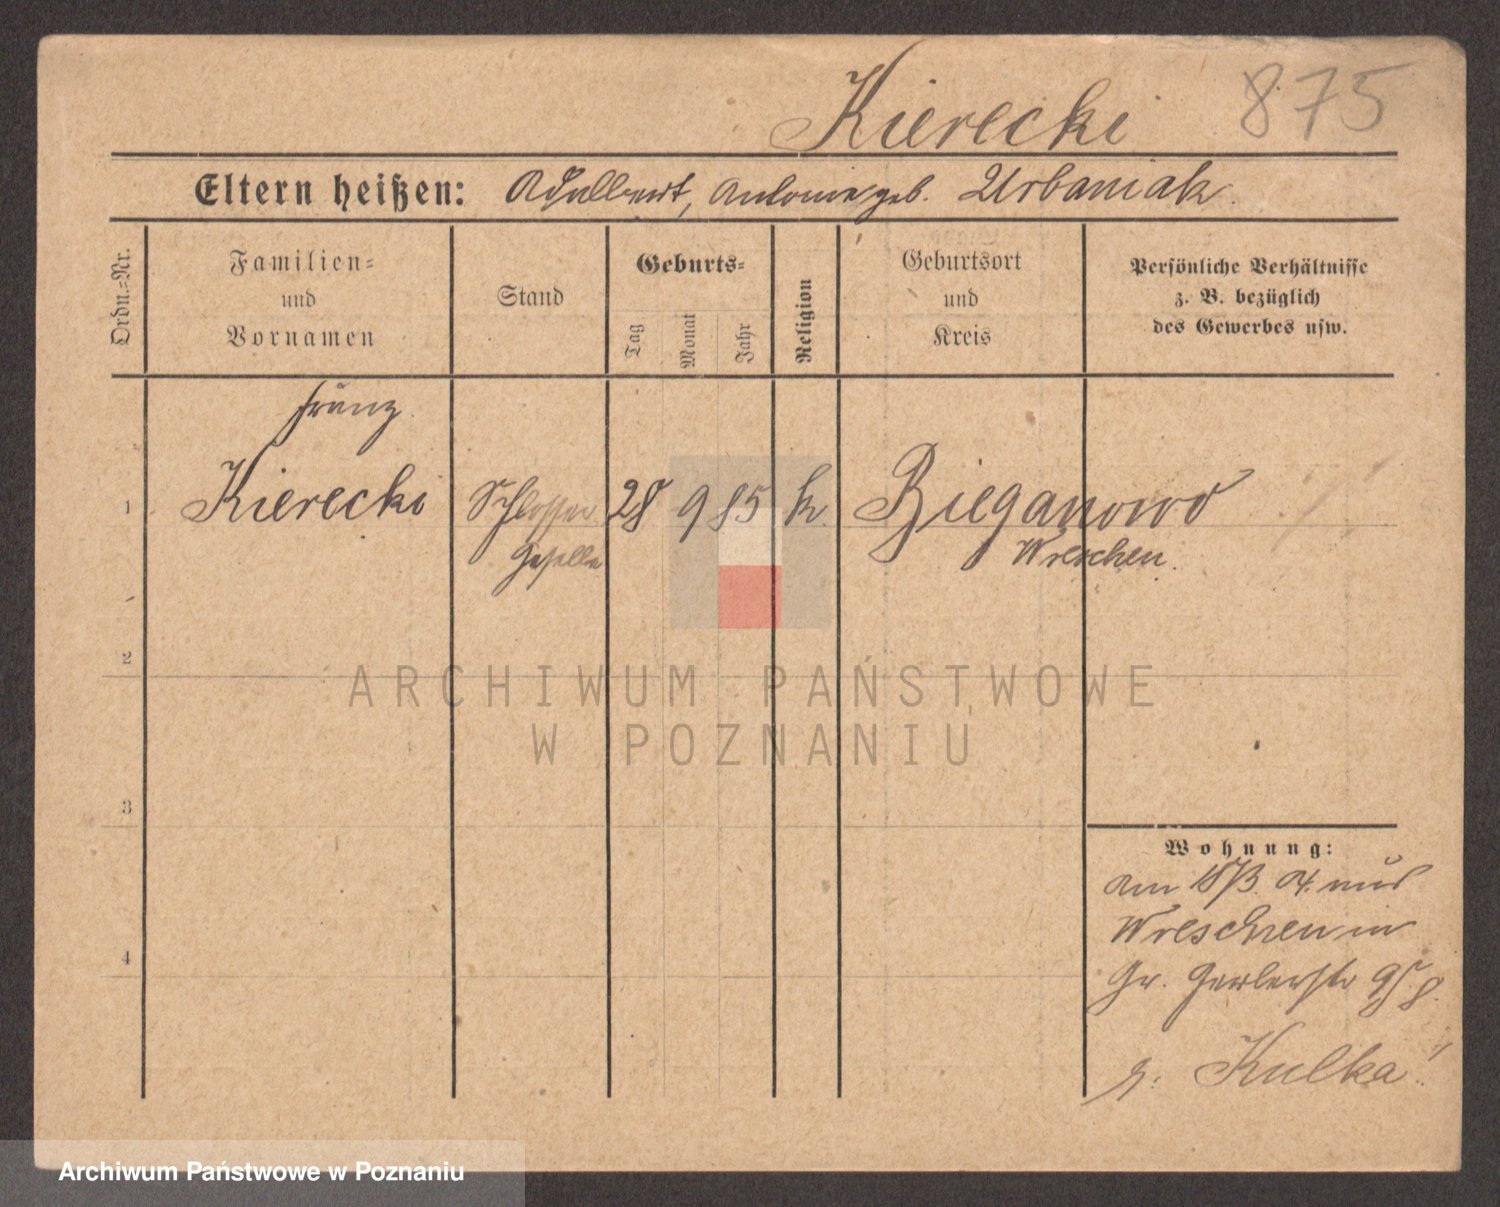 Kierecki 875
Eltern heißen: Adalbert, Antonie geb. Urbaniak.
Ordn.-Nr.
Familien-
und
Vornamen
Stand
Geburts-
Tag
Monat
Jahr
Religion
Geburtsort
und
Kreis
Persönliche Verhältnisse
z. B. bezüglich
des Gewerbes usw.
Franz
1 Kierecki Schlosser 28 9 85 k. Bieganowo
Geselle Wreschen.
2
3
4
Wohnung:
Am 18/3. 04. aus
Wreschen in
Gr. Gerberstr
Kulka
ARCHIWUM PAŃSTWOWE
W POZNANIU
Archiwum Państwowe w Poznaniu